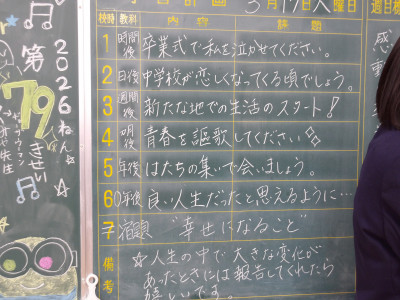 学習計画 3月17日(火)曜日
校時 教科 内容 課題
1 時間後 卒業式で私を泣かせてください。
2 日後 中学校が恋しくなってくる頃でしょう。
3 週間後 新たな地での生活のスタート!
4 月後 青春を謳歌してください
5 年後 はたちの集いで会いましょう。
60年後 良い人生だったと思えるように…
7 宿題 "幸せになること"
備考 ☆人生の中で大きな変化が
あったときには報告してくれたら
嬉しいです。
週目標
感
動
2026ねん☆
第79きせい
先生